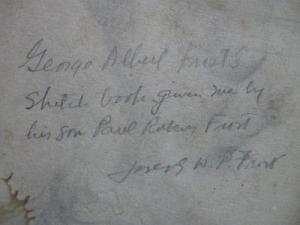 George Albert Frost's
Sketch book given me by
his son Paul Rubens Frost
Joseph W. P. Frost